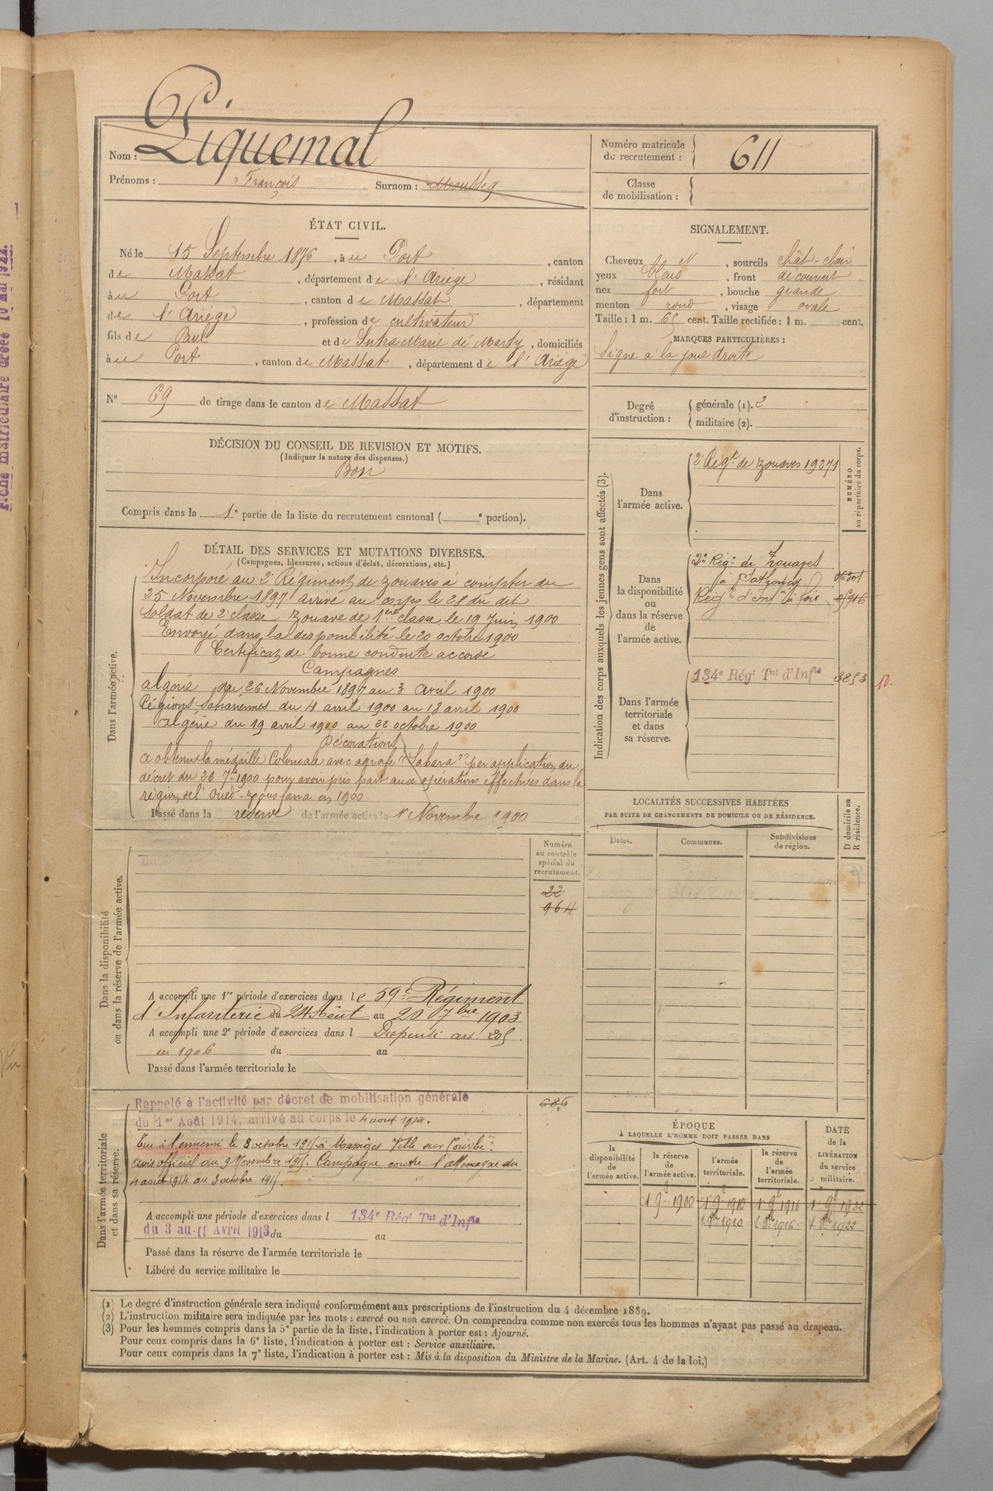 Nom : Piquemal
Prénoms : François Surnom :
Numéro matricule de recrutement : 611
Classe de mobilisation :
ÉTAT CIVIL.
Né le 15 Septembre 1876, à u Port, canton
de Massat, département de l'Ariège, résidant
à u Port, canton de Massat, département
de l'Ariège, profession de cultivateur
fils de Paul et de Marie de Marty, domiciliés
à u Port, canton de Massat, département de l'Ariège
N° 69 de tirage dans le canton de Massat
SIGNALEMENT.
Cheveux, sourcils chât-clair
yeux bleus, front découvert
nez fort, bouche grande
menton rond, visage ovale
Taille : 1 m. 65 cent. Taille rectifiée : 1 m. cent.
MARQUES PARTICULIÈRES :
Signe à la joue droite
Degré d'instruction : générale (1). 2
militaire (2).
DÉCISION DU CONSEIL DE REVISION ET MOTIFS.
(Indiquer la nature des dispenses.)
Bon
Compris dans la 1e partie de la liste du recrutement cantonal ( e portion).
DÉTAIL DES SERVICES ET MUTATIONS DIVERSES.
(Campagnes, blessures, actions d'éclat, décorations, etc.)
Dans l'armée active.
Incorporé au 2e Régiment de zouaves à compter du
25 Novembre 1897 arrivé au corps le 28 du dit
soldat de 2e classe zouave de 1ere classe le 19 Juin 1900
Envoyé dans la disponibilité le 20 octobre 1900
Certificat de bonne conduite accordé
Campagnes
algérie du 26 Novembre 1897 au 3 Avril 1900
Régions Sahariennes du 4 avril 1900 au 18 avril 1900
algérie du 19 avril 1900 au 22 octobre 1900
Décorations
a obtenu la médaille Coloniale avec agrafe "Sahara" par application du
décret du 30 7bre 1900 pour avoir pris part aux opérations effectuées dans la
région de l'Oued-Zousfana en 1900
Passé dans la réserve de l'armée active le 1er Novembre 1900
Indication des corps auxquels les jeunes gens sont affectés (3).
NUMÉRO au répertoire du corps.
Dans l'armée active.
2e Régt de zouaves 19271
Dans la disponibilité ou dans la réserve de l'armée active.
2e Régt de Zouaves
Régt d'Inf. à Foix
Dans l'armée territoriale et dans sa réserve.
134e Régt Tal d'Infie 3853
LOCALITÉS SUCCESSIVES HABITÉES
PAR SUITE DE CHANGEMENTS DE DOMICILE OU DE RÉSIDENCE.
Dates. Communes. Subdivisions de région.
D domicile ou R résidence.
Dans la disponibilité ou dans la réserve de l'armée active.
Numéro au contrôle spécial du recrutement.
22
964
A accompli une 1re période d'exercices dans le 59e Régiment
d'Infanterie du 24 Août au 20 7bre 1903
A accompli une 2e période d'exercices dans l Dispensé
en 1906 du au
Passé dans l'armée territoriale le
Dans l'armée territoriale et dans sa réserve.
686
Rappelé à l'activité par décret de mobilisation générale
du 1er Août 1914, arrivé au corps le 4 aout 1914.
Tué à l'ennemi le 3 octobre 1915 à Massiges Ville sur Tourbe
avis officiel du 9 Novembre 1915. Campagne contre l'allemagne du
4 aout 1914 au 3 octobre 1915.
A accompli une période d'exercices dans l 134e Régt Tal d'Infie
du 3 au 11 Avril 1913 du au
Passé dans la réserve de l'armée territoriale le
Libéré du service militaire le
ÉPOQUE
À LAQUELLE L'HOMME DOIT PASSER DANS
la disponibilité de l'armée active.
la réserve de l'armée active.
l'armée territoriale.
la réserve de l'armée territoriale.
DATE de la LIBÉRATION du service militaire.
1 9bre 1900 1 9bre 1910 1 9bre 1916 1 9bre 1922
1 8bre 1910 1 8bre 1916 1 8bre 1922
(1) Le degré d'instruction générale sera indiqué conformément aux prescriptions de l'instruction du 4 décembre 1889.
(2) L'instruction militaire sera indiquée par les mots : exercé ou non exercé. On comprendra comme non exercés tous les hommes n'ayant pas passé au drapeau.
(3) Pour les hommes compris dans la 5e partie de la liste, l'indication à porter est : Ajourné.
Pour ceux compris dans la 6e liste, l'indication à porter est : Service auxiliaire.
Pour ceux compris dans la 7e liste, l'indication à porter est : Mis à la disposition du Ministre de la Marine. (Art. 4 de la loi.)